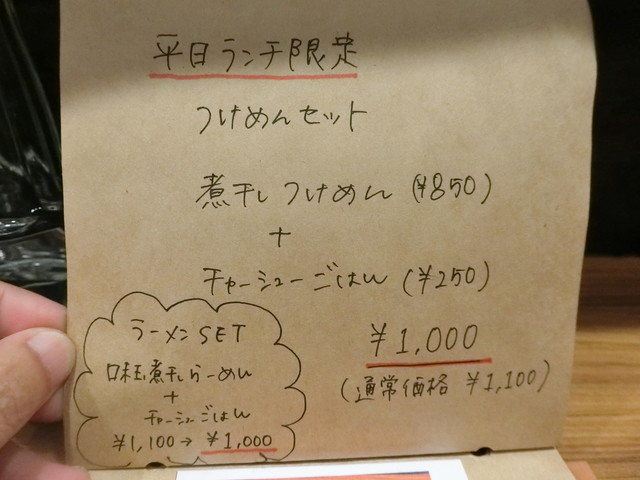 平日ランチ限定
つけめんセット
煮干しつけめん (¥850)
+
チャーシューごはん (¥250)
¥1,000
(通常価格 ¥1,100)
ラーメンSET
煮干しらーめん
+
チャーシューごはん
¥1,100→¥1,000